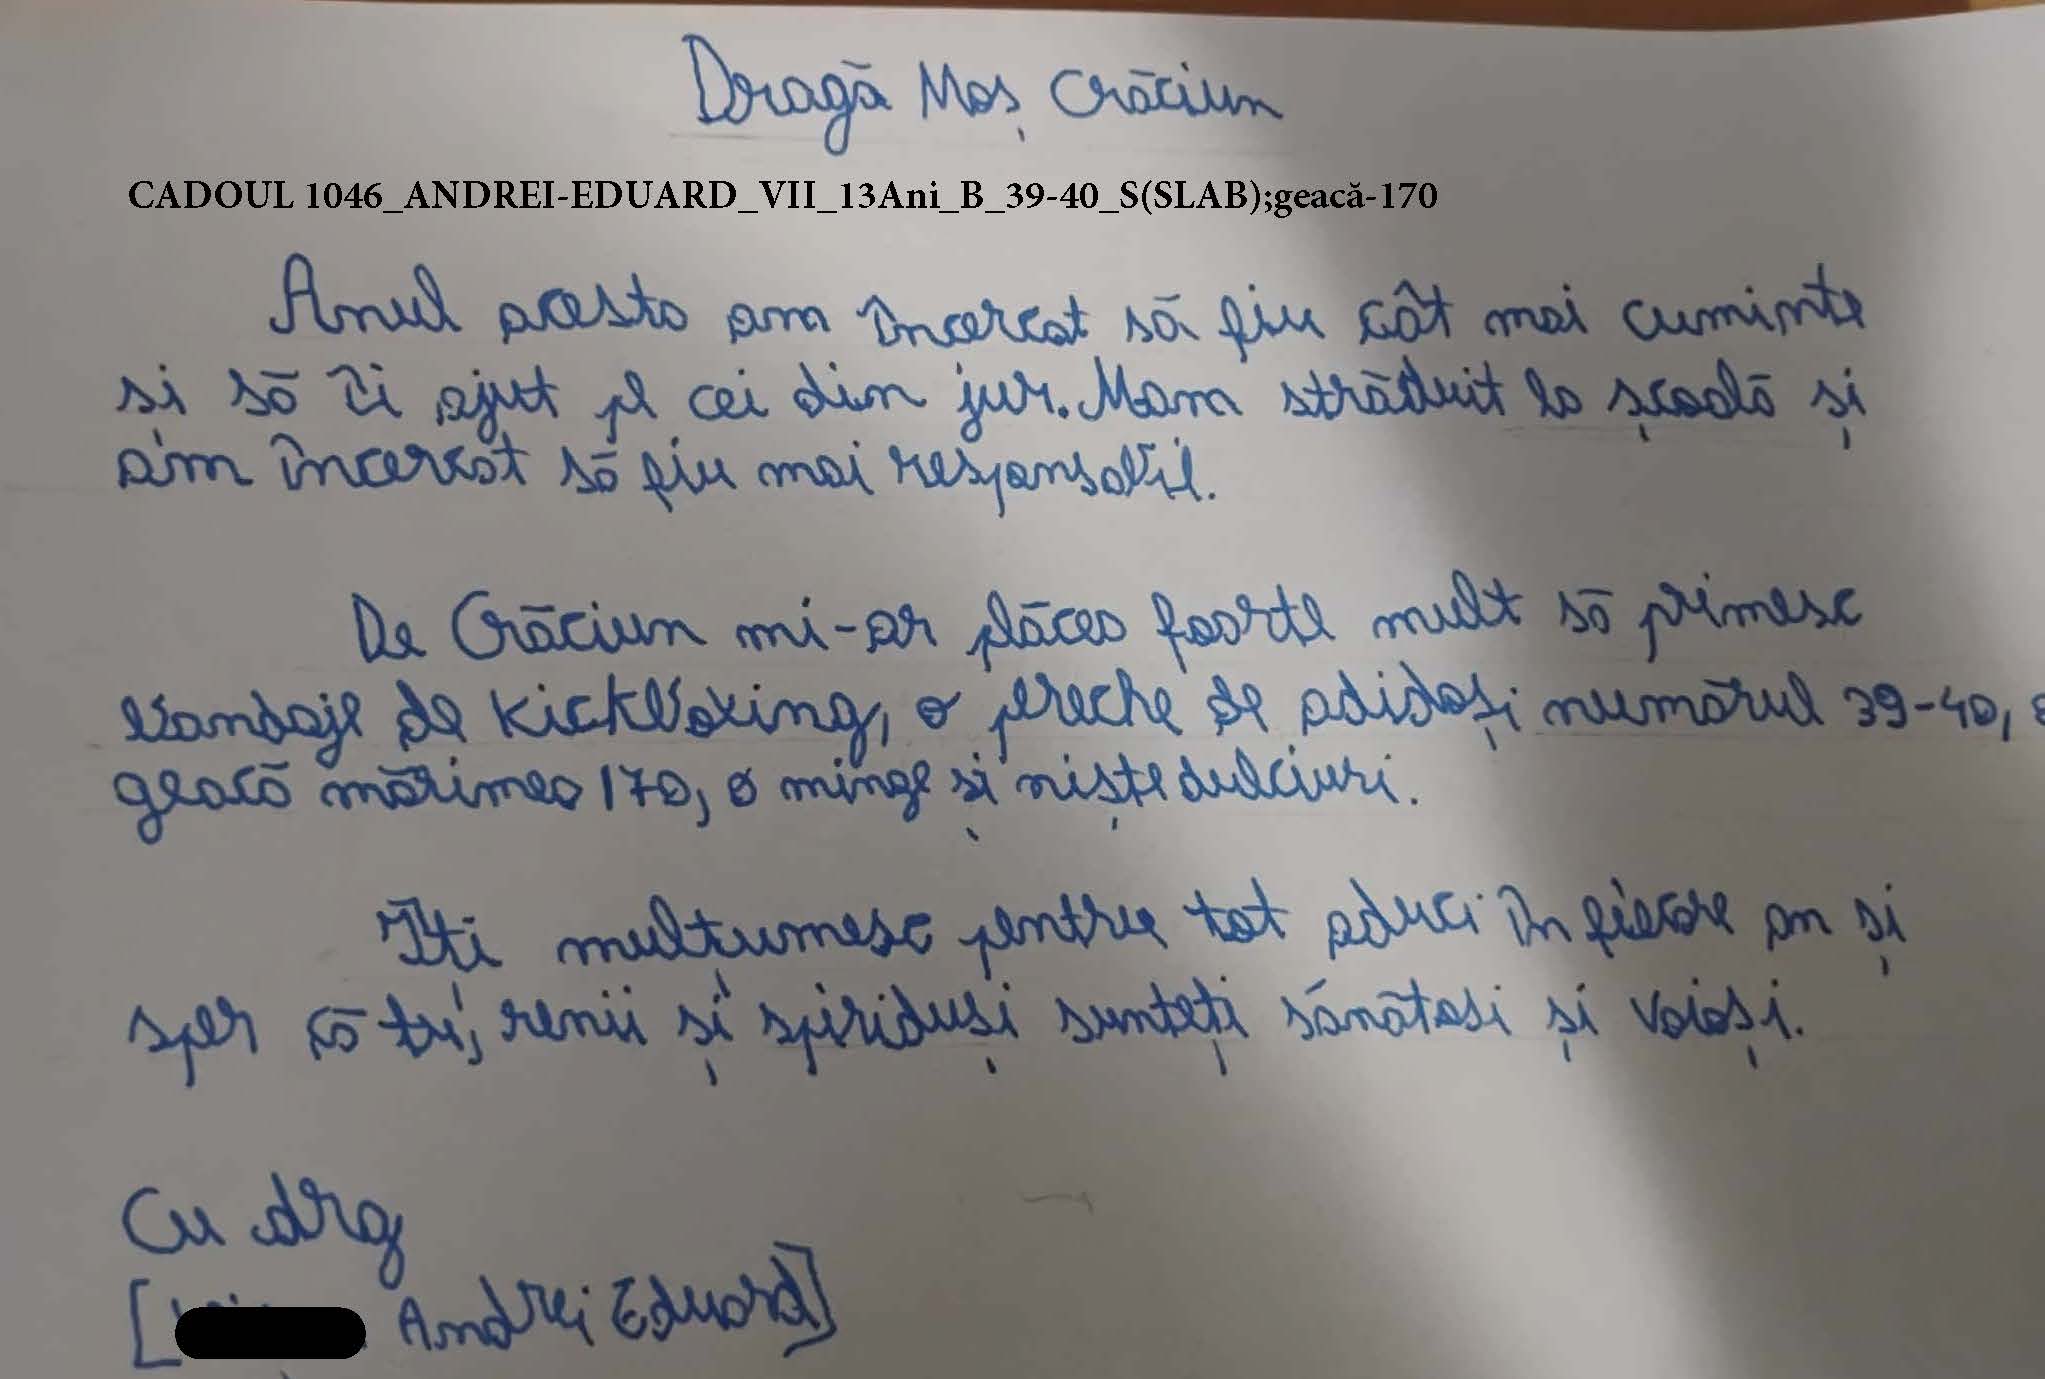 Dragă Moș Crăciun
CADOUL 1046_ANDREI-EDUARD_VII_13Ani_B_39-40_S(SLAB);geacă-170
Anul acesta am încercat să fiu cât mai cuminte
si să îi ajut pe cei din jur. Mam străduit la școală și
am încercat să fiu mai responsabil.
De Crăciun mi-ar plăcea foarte mult să primesc
bandaje de kickboxing, o pereche de adidași numărul 39-40, o
geacă mărimea 170, o minge și niște dulciuri.
Îți mulțumesc pentru tot aduci în fiecare an și
sper că tu, renii și spiriduși sunteți sănătosi și voioși.
Cu drg
[ Andrei Eduard]